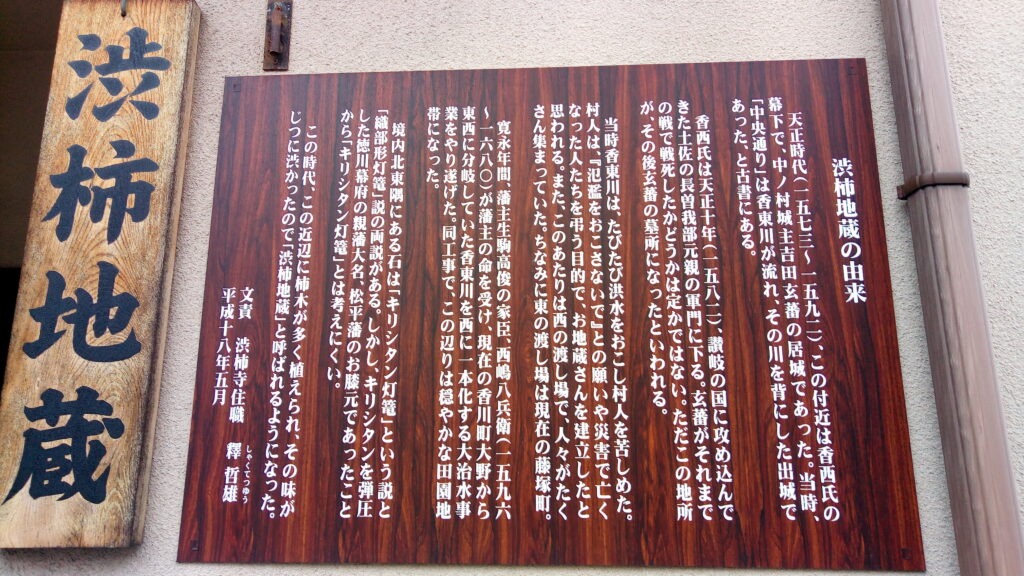 渋柿地蔵
渋柿地蔵の由来
天正時代(一五七三~一五九二)、この付近は香西氏の
幕下で、中ノ村城主吉田玄蕃の居城であった。当時、
「中央通り」は香東川が流れ、その川を背にした出城で
あった、と古書にある。
香西氏は天正十年(一五八二)、讃岐の国に攻め込んで
きた土佐の長曽我部元親の軍門に下る。玄蕃がそれまで
の戦で戦死したかどうかは定かではない。ただこの地所
が、その後玄蕃の墓所になったといわれる。
当時香東川は、たびたび洪水をおこし村人を苦しめた。
村人は、『氾濫をおこさないで』との願いや災害で亡く
なった人たちを弔う目的で、お地蔵さんを建立したと
思われる。また、このあたりは西の渡し場で、人々がたく
さん集まっていた。ちなみに東の渡し場は現在の藤塚町。
寛永年間、藩主生駒高俊の家臣、西嶋八兵衛(一五九六
~一六八〇)が藩主の命を受け、現在の香川町大野から
東西に分岐していた香東川を西に一本化する大治水事
業をやり遂げた。同工事で、この辺りは穏やかな田園地
帯になった。
境内北東隅にある石は「キリシタン灯篭」という説と
「織部形灯篭」説の両説がある。しかし、キリシタンを弾圧
した徳川幕府の親藩大名、松平藩のお膝元であったこと
から「キリシタン灯篭」とは考えにくい。
この時代、この近辺に柿木が多く植えられ、その味が
じつに渋かったので「渋柿地蔵」と呼ばれるようになった。
文責 渋柿寺住職 釋哲雄
しゃくてつゆう
平成十八年五月